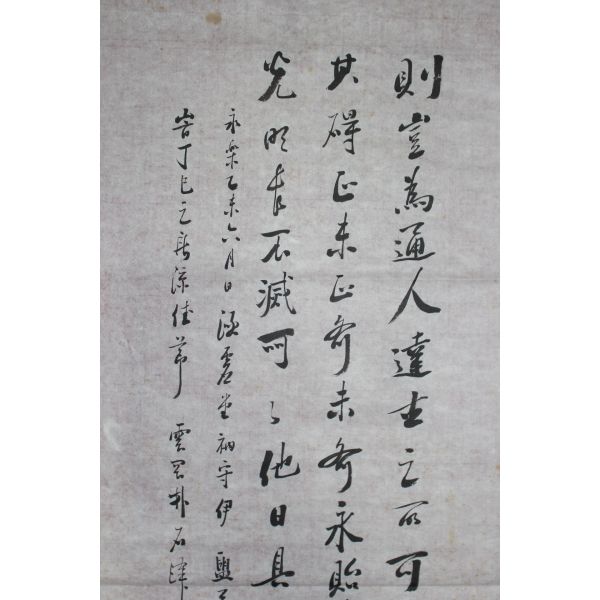 則豈為通人達士之所可
其礙正未正前未前永貽
光明有不滅可〻他日具
永樂乙未六月日涵虛堂衲守伊盥
峕丁巳之新涼佳節 雲岡朴石